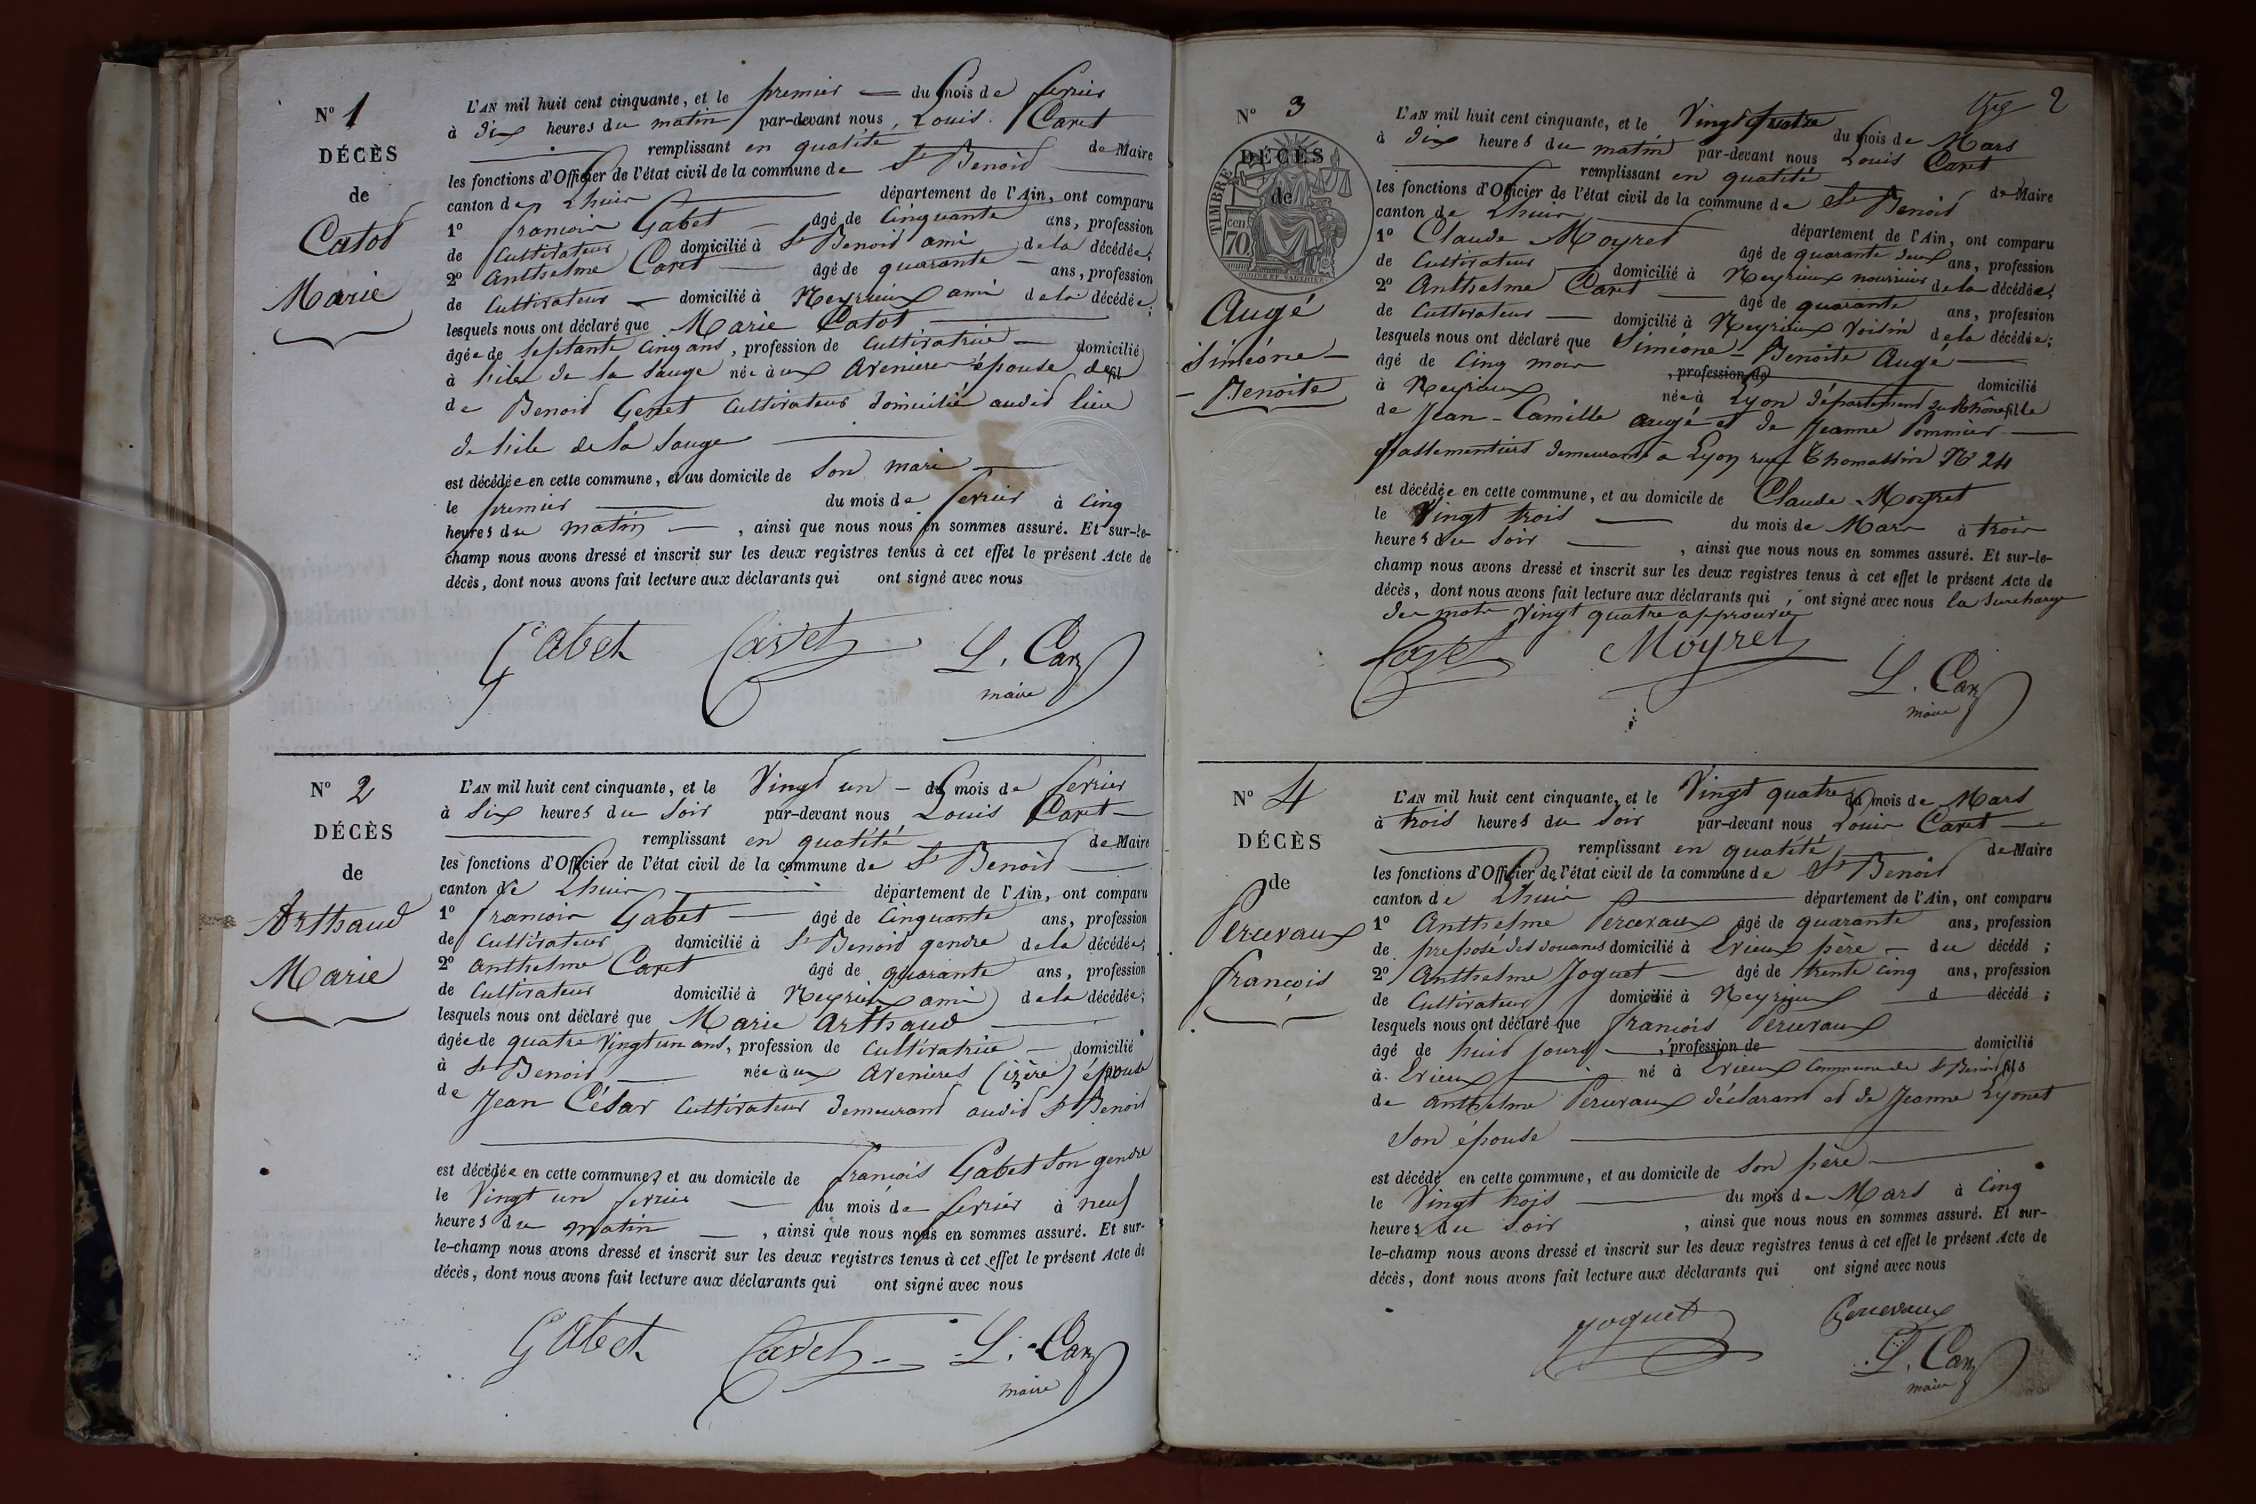 N° 1
DÉCÈS
de
Catot
Marie
L'AN mil huit cent cinquante, et le premier du mois de fevrier
à dix heures du matin par-devant nous Louis Caret
remplissant en qualité de Maire
les fonctions d'Officier de l'état civil de la commune de St Benoit
canton de Lhuis département de l'Ain, ont comparu
1° françois Gabet âgé de Cinquante ans, profession
de Cultivateur domicilié à St Benoit ami de la décédée;
2° Anthelme Caret âgé de quarante ans, profession
de Cultivateur domicilié à Neyrieux ami de la décédée;
lesquels nous ont déclaré que Marie Catot
âgée de septante cinq ans, profession de Cultivatrice domicilié
à l'ile de la Sauge née aux Avenieres épouse de
de Benoit Genet Cultivateur domicilié audit lieu
de l'ile de la Sauge
est décédée en cette commune, et au domicile de son mari
le premier du mois de fevrier à Cinq
heures du matin, ainsi que nous nous en sommes assuré. Et sur-le-
champ nous avons dressé et inscrit sur les deux registres tenus à cet effet le présent Acte de
décès, dont nous avons fait lecture aux déclarants qui ont signé avec nous
Gabet Caret L. Caret
maire
N° 2
DÉCÈS
de
Arthaud
Marie
L'AN mil huit cent cinquante, et le Vingt un du mois de fevrier
à Six heures du soir par-devant nous Louis Caret
remplissant en qualité de Maire
les fonctions d'Officier de l'état civil de la commune de St Benoit
canton de Lhuis département de l'Ain, ont comparu
1° francois Gabet âgé de Cinquante ans, profession
de Cultivateur domicilié à St Benoit gendre de la décédée;
2° anthelme Caret âgé de quarante ans, profession
de Cultivateur domicilié à Neyrieux ami de la décédée;
lesquels nous ont déclaré que Marie Arthaud
âgée de quatre Vingt un ans, profession de Cultivatrice domicilié
à St Benoit née aux Avenieres (izère) épouse
de Jean César Cultivateur demeurant audit St Benoit
est décédée en cette commune, et au domicile de françois Gabet son gendre
le Vingt un fevrier du mois de fevrier à neuf
heures du matin, ainsi que nous nous en sommes assuré. Et sur-
le-champ nous avons dressé et inscrit sur les deux registres tenus à cet effet le présent Acte de
décès, dont nous avons fait lecture aux déclarants qui ont signé avec nous
Gabet Caret L. Caret
maire
2
N° 3
DÉCÈS
de
TIMBRE
70
Augé
Siméone
Benoite
L'AN mil huit cent cinquante, et le Vingt quatre du mois de Mars
à Dix heures du matin par-devant nous Louis Caret
remplissant en qualité de Maire
les fonctions d'Officier de l'état civil de la commune de St Benoit
canton de Lhuis département de l'Ain, ont comparu
1° Claude Moyret âgé de quarante deux ans, profession
de Cultivateur domicilié à Neyrieux nourricier de la décédée;
2° Anthelme Caret âgé de quarante ans, profession
de Cultivateur domicilié à Neyrieux Voisin de la décédée;
lesquels nous ont déclaré que Siméone-Benoite Augé
âgé de Cinq mois, profession de domicilié
à Neyrieux née à Lyon département du Rhône fille
de Jean-Camille augé et de Jeanne Pommier
passementiers demeurant à Lyon rue Thomassin N° 24
est décédée en cette commune, et au domicile de Claude Moyret
le Vingt trois du mois de Mars à trois
heures du Soir, ainsi que nous nous en sommes assuré. Et sur-le-
champ nous avons dressé et inscrit sur les deux registres tenus à cet effet le présent Acte de
décès, dont nous avons fait lecture aux déclarants qui ont signé avec nous la surcharge
des mots Vingt quatre approuvée
Caret Moyret L. Caret
maire
N° 4
DÉCÈS
de
Percevaux
françois
L'AN mil huit cent cinquante, et le Vingt quatre du mois de Mars
à trois heures du Soir par-devant nous Louis Caret
remplissant en qualité de Maire
les fonctions d'Officier de l'état civil de la commune de St Benoit
canton de Lhuis département de l'Ain, ont comparu
1° Anthelme Percevaux âgé de quarante ans, profession
de preposé des douanes domicilié à Evieux père du décédé;
2° Anthelme Joguet âgé de trente cinq ans, profession
de Cultivateur domicilié à Neyrieux d décédé;
lesquels nous ont déclaré que francois Percevaux
âgé de huit jours, profession de domicilié
à Evieux né à Evieux Commune de St Benoit fils
de anthelme Percevaux déclarant et de Jeanne Lyonet
son épouse
est décédé en cette commune, et au domicile de son père
le Vingt trois du mois de Mars à Cinq
heures du soir, ainsi que nous nous en sommes assuré. Et sur-
le-champ nous avons dressé et inscrit sur les deux registres tenus à cet effet le présent Acte de
décès, dont nous avons fait lecture aux déclarants qui ont signé avec nous
Joguet Percevaux
L. Caret
maire